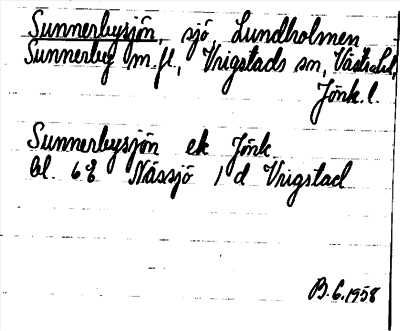 Sunnerbysjön, sjö, Lundholmen
Sunnerby m.fl., Vrigstads sn, Västra hd,
Jönk. l.
Sunnerbysjön ek Jönk.
bl. 6 Nässjö 1 d Vrigstad
B. G. 1958